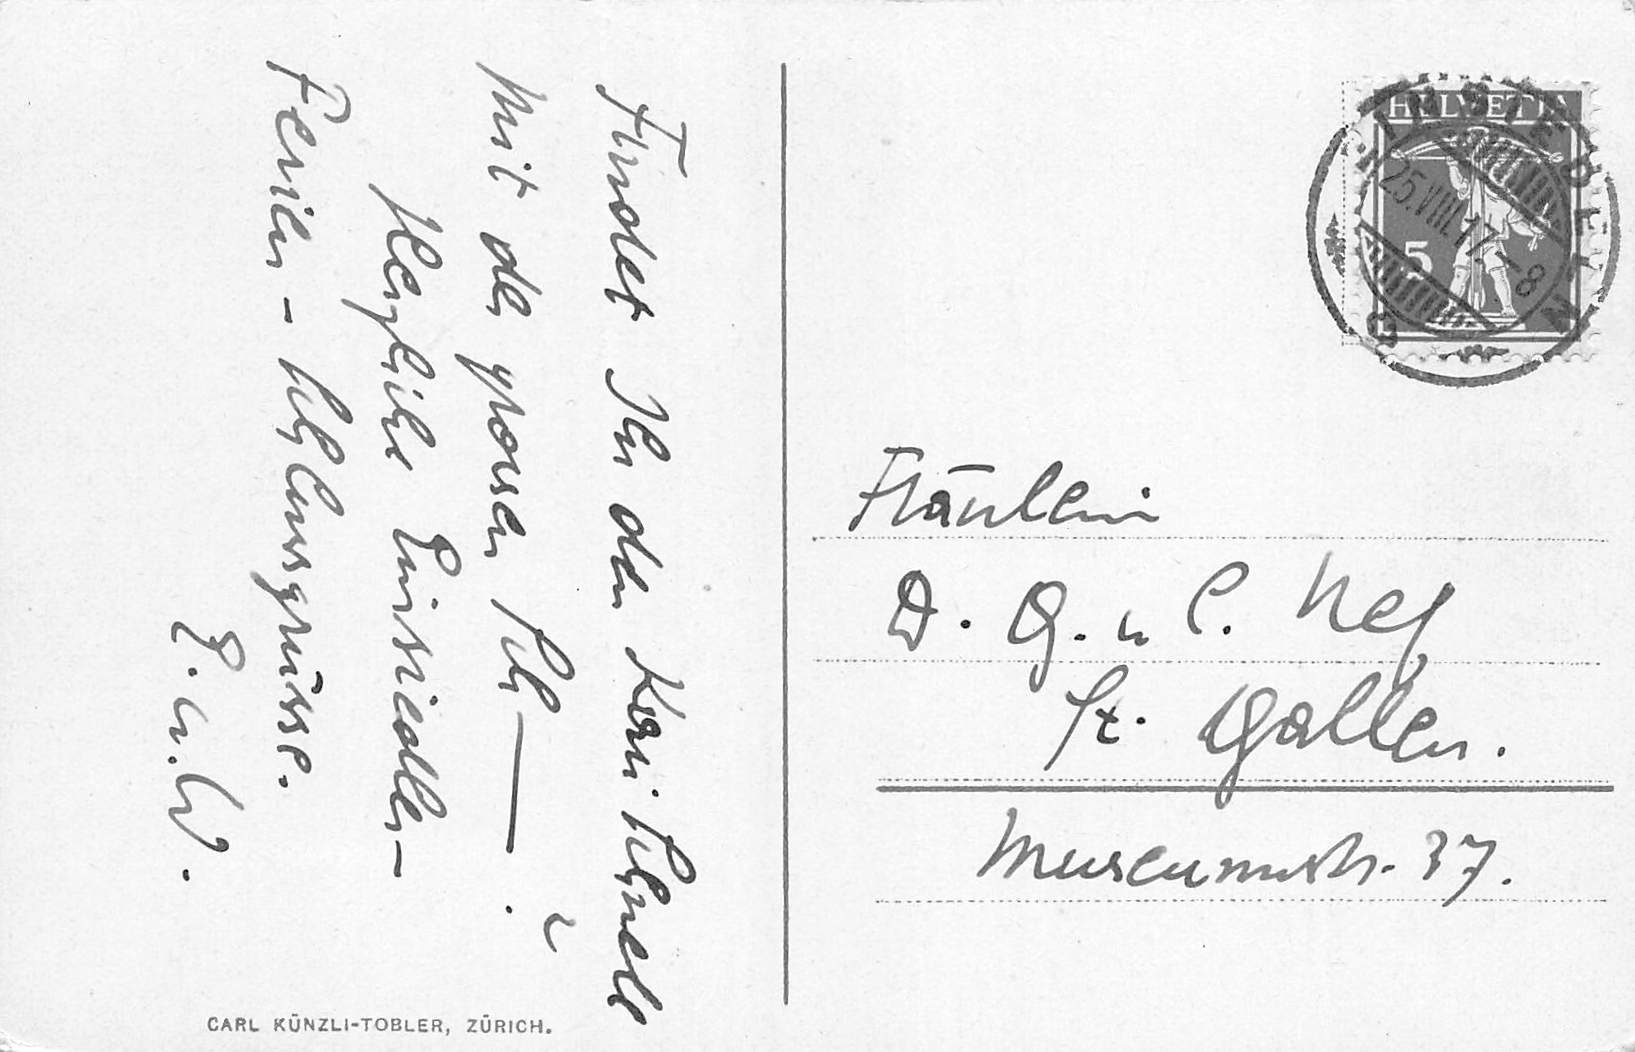 Findet Ihr den Kari Schnell
mit der grossen Sch—. ?
Herzliche Einsiedler-
Ferien - Schlussgrüsse.
E. u. W.
CARL KÜNZLI-TOBLER, ZÜRICH.
HELVETIA
5
EINSIEDELN
25.VIII.17.-8
Fräulein
D. G. u C. Nef
St. Gallen.
Museumstr. 37.